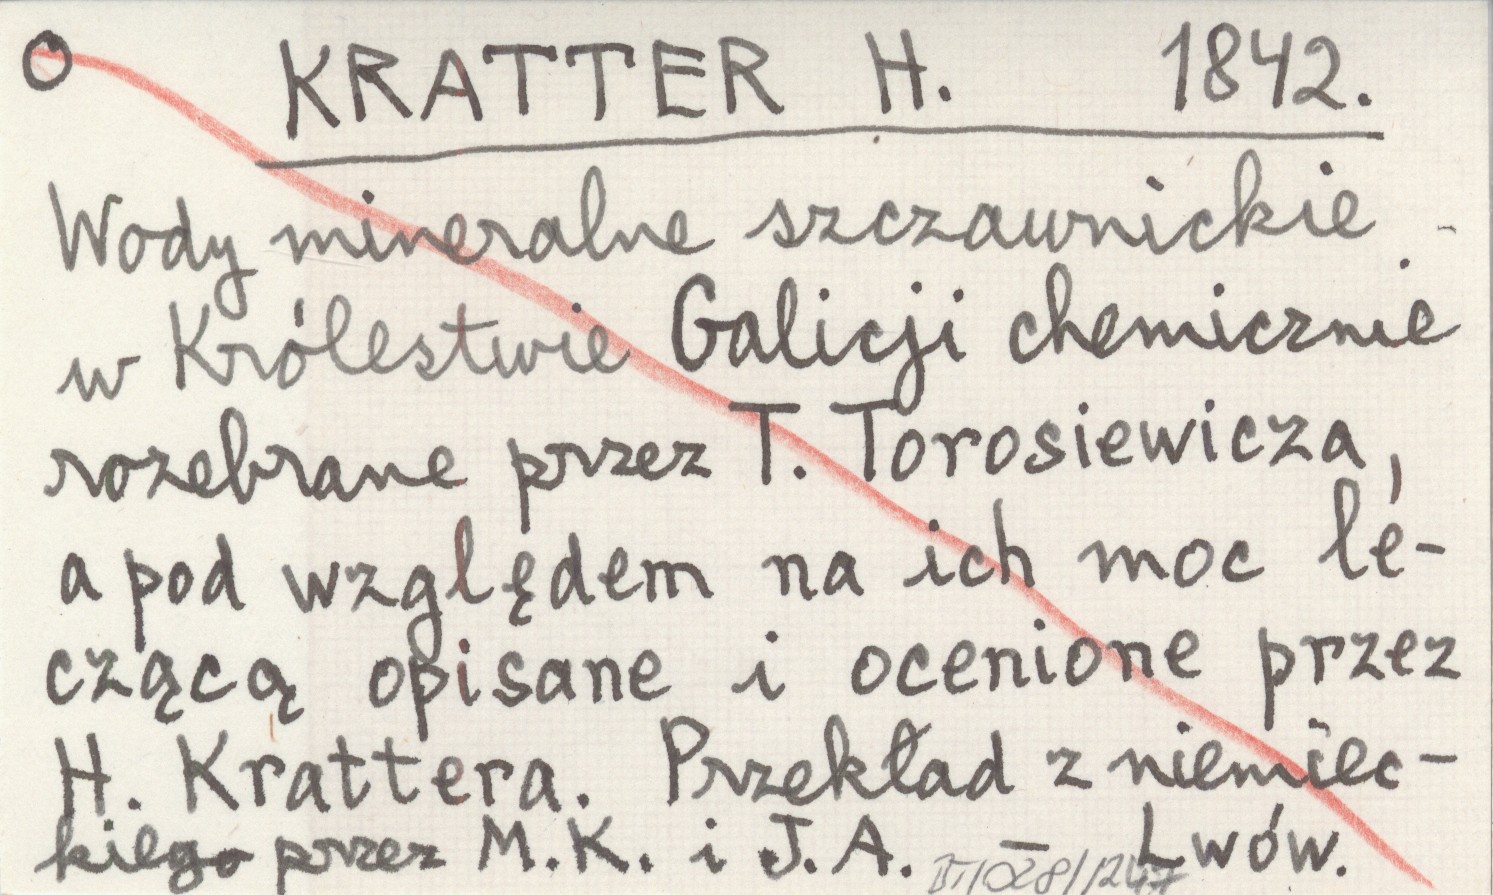 O KRATTER H. 1842.
Wody mineralne szczawnickie
w Królestwie Galicji chemicznie
rozebrane przez T. Torosiewicza,
a pod względem na ich moc lé-
czącą opisane i ocenione przez
H. Krattera. Przekład z niemiec-
kiego przez M.K. i J.A. – Lwów.